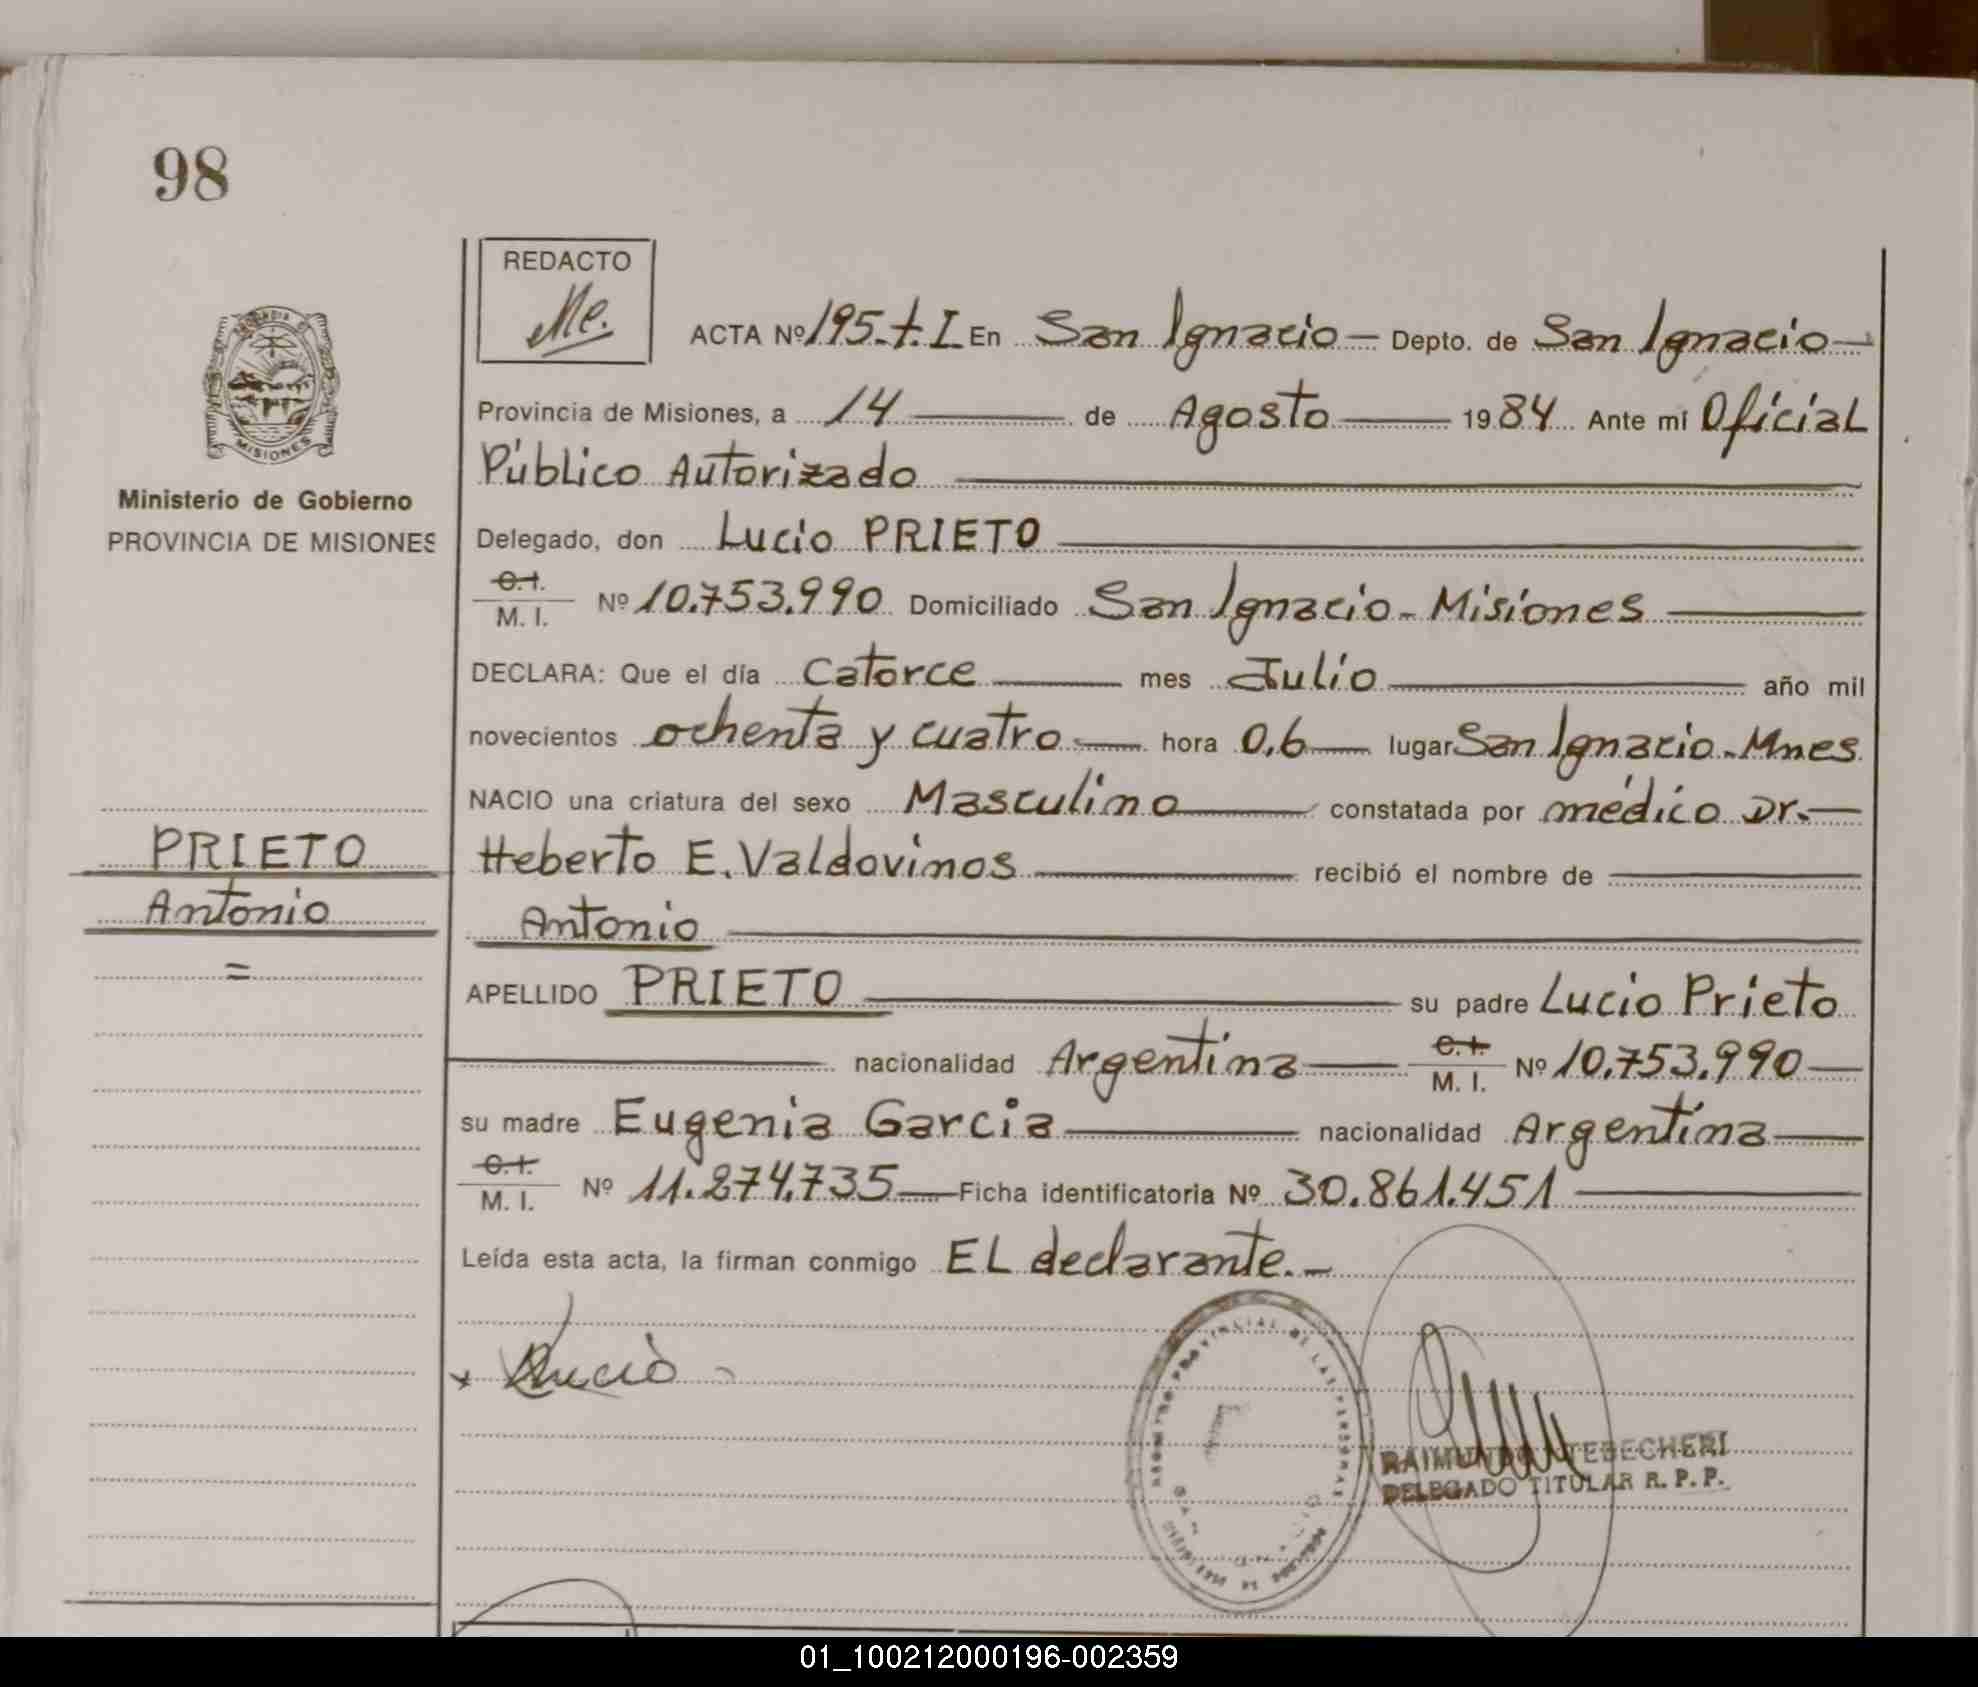 98
REDACTO
Me.
ACTA Nº 195-t.I En San Ignacio — Depto. de San Ignacio —
Provincia de Misiones, a 14 de Agosto 1984 Ante mi Oficial
Público Autorizado
Delegado, don Lucio PRIETO
C.I. M. I. Nº 10.753.990 Domiciliado San Ignacio - Misiones
DECLARA: Que el día Catorce mes Julio año mil
novecientos ochenta y cuatro hora 0,6 lugar San Ignacio - Mnes
NACIO una criatura del sexo Masculino constatada por médico Dr.
Heberto E. Valdovinos recibió el nombre de
Antonio
APELLIDO PRIETO su padre Lucio Prieto
nacionalidad Argentina C.I. M. I. Nº 10.753.990
su madre Eugenia Garcia nacionalidad Argentina
C.I. M. I. Nº 11.274.735 Ficha identificatoria Nº 30.861.451
Leída esta acta, la firman conmigo EL declarante.-
Lucio
PROVINCIAL DE LAS PERSONAS
RAIMUNDO TEBECHERI
DELEGADO TITULAR R. P. P.
MISIONES
Ministerio de Gobierno
PROVINCIA DE MISIONES
PRIETO
Antonio
=
01_100212000196-002359